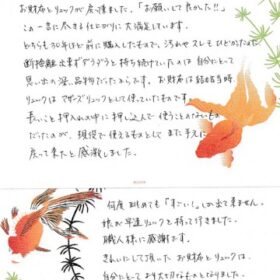 お財布とリュックが戻って来ました。「お願いして良かった!!」
この一言に尽きる仕上がりに大満足しています。
どちらも30年ほど前に購入したもので、汚れやスレもひどかったため
断捨離出来ずずうずうと持ち続けていたのは自分にとって
思い出の深い品物だったからです。お財布は結婚当時、
リュックはマザーズリュックとして使っていたものです。
長いこと押入れの中に押し込んで使うことのないもの
だったのが、現役で使えるものとしてまた手元に
戻って来たと感激しました。
何度眺めても「すごい!」しか出て来ません。
娘が早速リュックを持って行きました。
職人様に感謝です。
きれいにして頂いたお財布とリュックは、
自分にとってより大切なものとなりました。